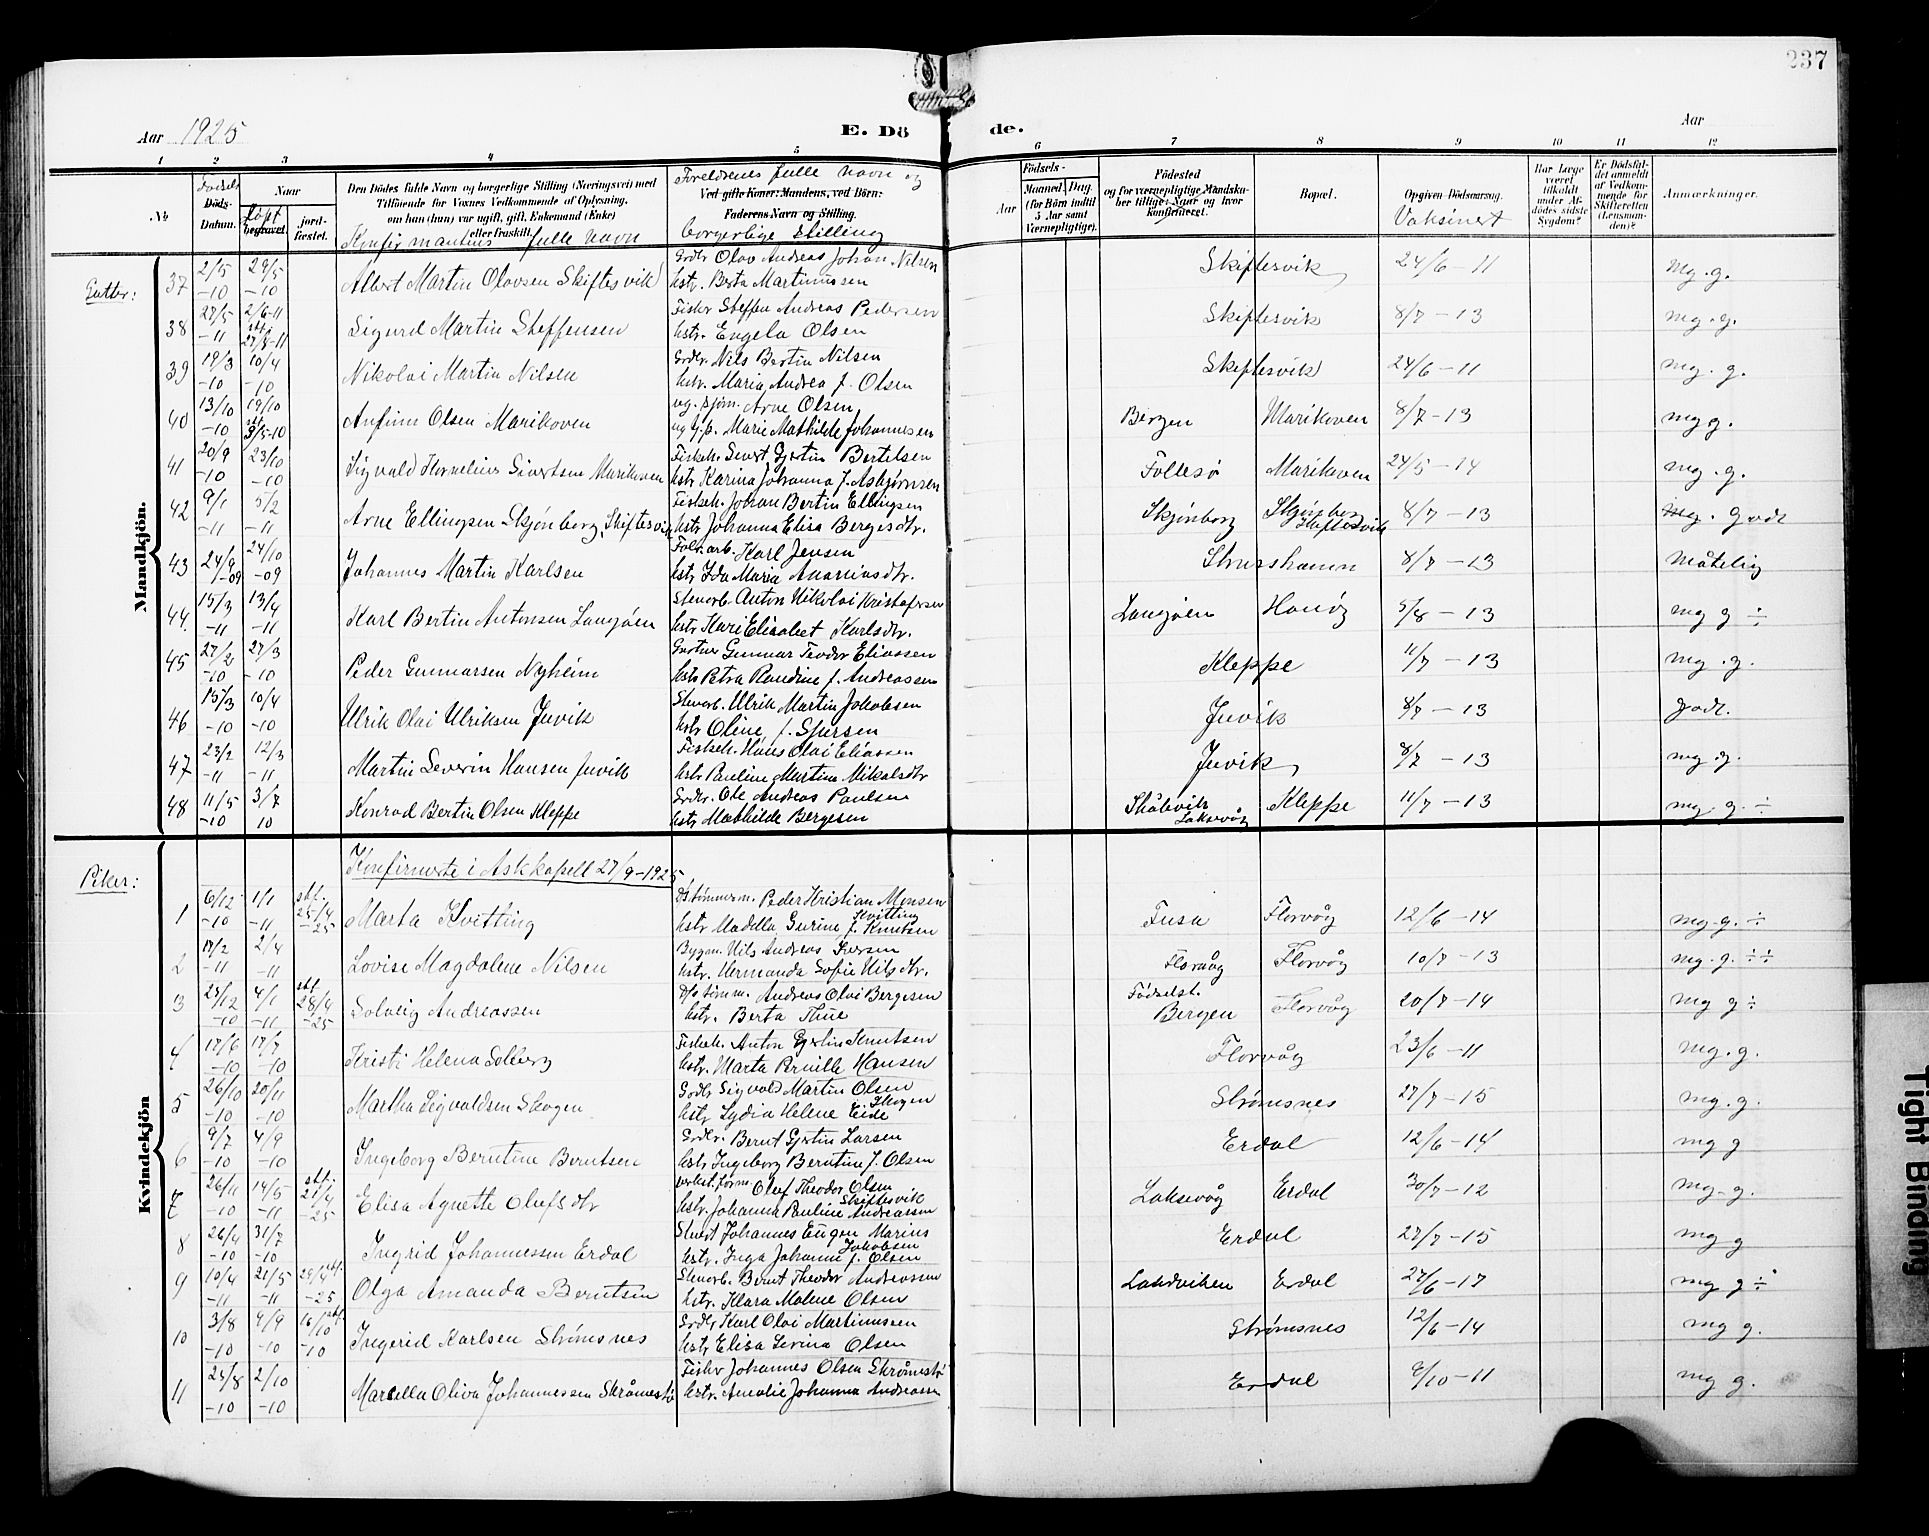 237
Aar 1925
E. Dö de.
Aar
1 2 3 4 5 6 7 8 9 10 11 12
№
Fødsels
Döds-
Datum.
Naar
døpt
begravet.
jord-
fæstet.
Den Dödes fulde Navn og borgerlige Stilling (Næringsvei) med
Tilföiende for Voxnes Vedkommende af Oplysning,
om han (hun) var ugift, gift, Enkemand (Enke)
eller fraskilt.
Konfirmantens fulle navn
Foreldrenes fulle navn og
Ved gifte Koner: Mandens, ved Börn:
Faderens Navn og Stilling.
borgerlige stilling
Aar
Födsels-
Maaned. Dag.
(for Börn indtil
5 Aar samt
Værnepligtige).
Födested
og for værnepligtige Mandska-
ber tillige: Naar og hvor
konfirmeret.
Bopæl.
Opgiven Dödsaarsag.
Vaksinert
Har Læge
været
tilkaldt
under Af-
dödes sidste
Sygdom?
Er Dödsfal-
det anmeldt
af Vedkom-
mende for
Skifteretten
(Lensman-
den)?
Anmærkninger.
Gutter:
Mandkjön.
37 2/5 -10 29/5 -10 Albert Martin Olavsen Skiftesvik Grdbr Olav Andreas Johan Nilsen Skiftesvik 24/6-11 mg. g.
hstr. Berta Martinussen
38 27/5 -11 2/6-11 stf. 27/8-11 Sigurd Martin Steffensen Fisker Steffen Andreas Pedersen Skiftesvik 8/7-13 mg. g.
hstr. Engela Olsen
39 19/3 -10 10/4 -10 Nikolai Martin Nilsen Grdbr. Nils Bertin Nilsen Skiftesvik 24/6-11 mg. g.
hstr. Maria Andrea f. Olsen
40 13/10 -10 19/10 stf. Anfinn Olsen Marikoven ug. sjøm. Arne Olsen Bergen Marikoven 8/7-13 mg g.
ug g.p. Marie Mathilde Johannesen
41 20/9 -10 23/10 -10 Sigvald Kornelius Sivertsen Marikoven Fiskeh. Sivert Gjertin Bertelsen Follesø Marikoven 24/5-14 mg. g.
hstr Karina Johanna f. Asbjørnsen
42 9/1 -11 5/2 -11 Arne Ellingsen Skjønborg, Skiftesvik Fiskeh. Johan Bertin Ellingsen Skjønborg Skjønborg Skiftesvik 8/7-13 mg. godt
hstr Johanna Elisa Bergesdtr.
43 24/9 -09 24/10 -09 Johannes Martin Karlsen Fabr.arb. Karl Jensen Strusshamn 8/7-13 Måtelig
hstr Ida Maria Ananiasdtr.
44. 15/3 -11 13/4 -11 Karl Bertin Antonsen Langøen Stenarb. Anton Nikolai Kristofersen Langøen Hanøy 5/8-13 mg g ÷
hstr Kari Elisabet Karlsdtr.
45 27/2 -10 27/3 -10 Peder Gunnarsen Nyheim Gartner Gunnar Teodor Eliassen Kleppe 11/7-13 mg. g.
hstr Petra Randine f. Andreassen
46 15/3 -10 10/4 -10 Ulrik Olai Ulriksen Juvik Stenarb. Ulrik Martin Jakobsen Juvik 8/7-13 godt.
hstr Oline f. Sjursen
47 23/2 -11 12/3 -11 Martin Severin Hansen Juvik Fiskeh. Hans Olai Eliassen Juvik 8/7-13 mg. g.
hstr Pauline Martina Mikalsdtr
48 11/5 -10 3/7 10 Konrad Bertin Olsen Kleppe Grdbr. Ole Andreas Paulsen Skålevik Laksevåg Kleppe 11/7-13 mg. g. ÷
hstr Mathilde Bergesen
Piker:
Kvindekjön
Konfirmerte i Askkapell 27/9-1925.
1 6/12 -10 1/1 -11 stf. 25/4 -25 Marta Kvitting Ds.tømmerm. Peder Kristian Monsen Kvitting Fusa Florvåg 12/6-14 mg. g. ÷
hstr Madella Gurine f. Knutsen
2 17/2 -11 2/4 -11 Lovise Magdalene Nilsen Bygm. Nils Andreas Iversen Florvåg Florvåg 10/7-13 mg. g. ÷÷
hstr. Hermanda Sofie Nilsdtr.
3 25/12 -10 4/1 -11 stf. 28/4 -25 Solveig Andreassen D/s tømm. Andreas Olai Bergesen Fødselst. Bergen Florvåg 20/7-14 mg g ÷
hstr. Berta Thue
4 17/6 -10 17/7 -10 Kristi Helena Solberg Fiskeh. Anton Gjertin Knutsen Florvåg 23/6-11 mg. g.
hstr. Marta Pernille Hansen
5 26/10 -10 20/11 -10 Martha Sigvaldsen Skogen Grdbr Sigvald Martin Olsen Skogen Strømsnes 27/7-15 mg. g.
hstr Lydia Helene Eide
6 9/7 -10 4/9 -10 Ingeborg Berntine Berntsen Grdbr. Bernt Gjertin Larsen Erdal 12/6-14 mg g
hstr Ingeborg Berntine f. Olsen
7 26/11 -10 14/5 -11 stf. 21/4 -25 Elisa Agnette Olufsdtr verkst.form Oluf Theodor Olsen Skiftesvik Laksevåg Erdal 30/7-12 mg. g.
hstr. Johanna Pauline Andreassen
8 26/4 -10 31/7 -10 Ingrid Johannessen Erdal Stuert Johannes Eugen Marius Jakobsen Erdal 27/7-15 mg g
hstr. Inga Johanne f. Olsen
9 10/4 -11 21/5 -11 29/4 stf. -25 Olga Amanda Berntsen Stenarb. Bernt Theodor Andreassen Laksviken Erdal 27/6-17 mg g ÷
hstr. Klara Malene Olsen
10 3/8 -10 9/9 -10 16/10 stf. -10 Ingerid Karlsen Strømsnes Grdbr Karl Olai Martinussen Strømsnes 12/6-14 mg g.
hstr Elisa Serina Olsen
11 25/8 -10 2/10 -10 Marsilla Oliva Johannessen Skråmestø Fisker Johannes Olsen Skråmestø Erdal 9/10-11 mg g.
hstr. Amalie Johanna Andreassen
Tight Binding